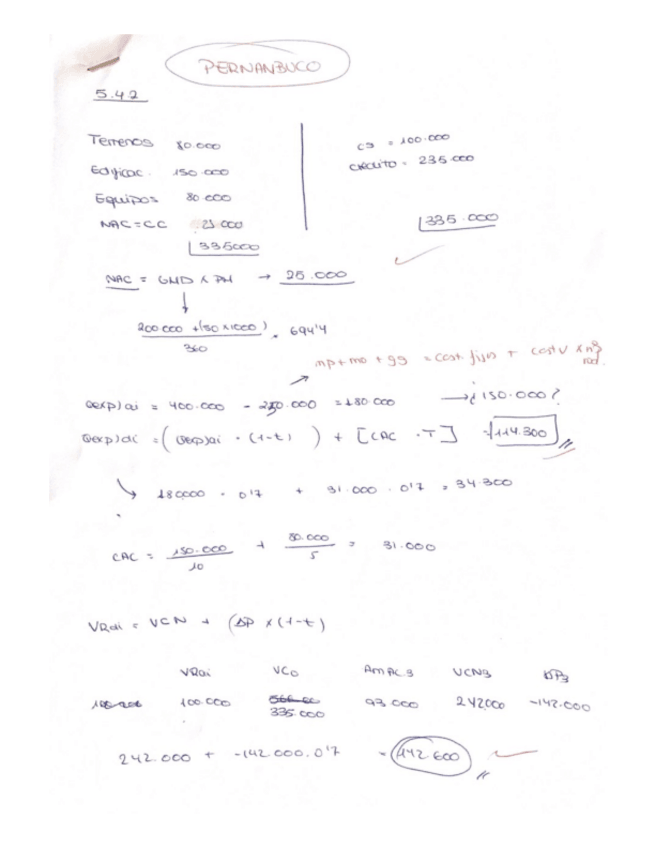 PERNANBUCO
5.4.2
Terrenos 80.000
Edificac. 150.000
Equipos 80.000
NAC=CC 25.000
335000
CS = 100.000
CRÉDITO = 235.000
335.000
NAC = GMD x PM → 25.000
200.000 + (50 x 1000) = 694'4
360
mp + mo + gg = cost. fijos + cost V x nº
¿150.000?
= 180.000
+ [CAC . T] = 114.300
180000 . 0'7 + 31.000 . 0'7 = 34.300
CAC = 150.000 + 80.000 = 31.000
10 5
VRdi = VCN + (ΔP x (1-t)
VRai VC0 AmAC3 VCN3 ΔP3
100.000 335.000 93.000 242000 -142.000
242.000 + -142.000.0'7 = 142.600